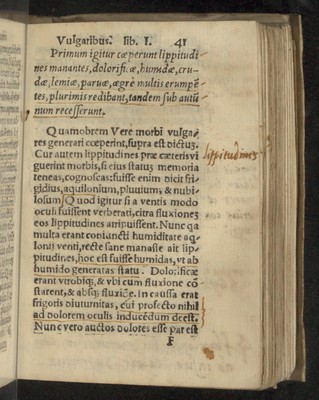 Vulgaribus. lib. I. 41
Primum igitur cœperunt lippitudi-
nes manantes, dolorificæ, humidæ, cru-
dæ, lemiæ, paruæ, ægrè multis erumpē
tes, plurimis redibant, tandem sub autū
num recesserunt.
Quamobrem Vere morbi vulga-
res generari cœperint, supra est dictū.
Cur autem lippitudines præ cæteris vi
guerint morbis, si eius status memoria
teneas, cognoscas: fuisse enim dicit fri
gidius, aquilonium, pluuium, & nubi-
losum. Quod igitur si a ventis modo
oculi fuissent verberati, citra fluxiones
eos lippitudines arripuissent. Nunc qa
multa erant coniuncti humiditate aq-
lonij venti, recte sane manasse ait lip-
pitudines, hoc est fuisse humidas, vt ab
humido generatas statu. Dolorificæ
erant vtrobiq;, & vbi cum fluxione cō
starent, & absq; fluxiōe. in caussa erat
frigoris diuturnitas, cui profecto nihil
ad dolorem oculis inducēdum deest.
Nunc vero auctos dolores esse par est
F
lippitudines